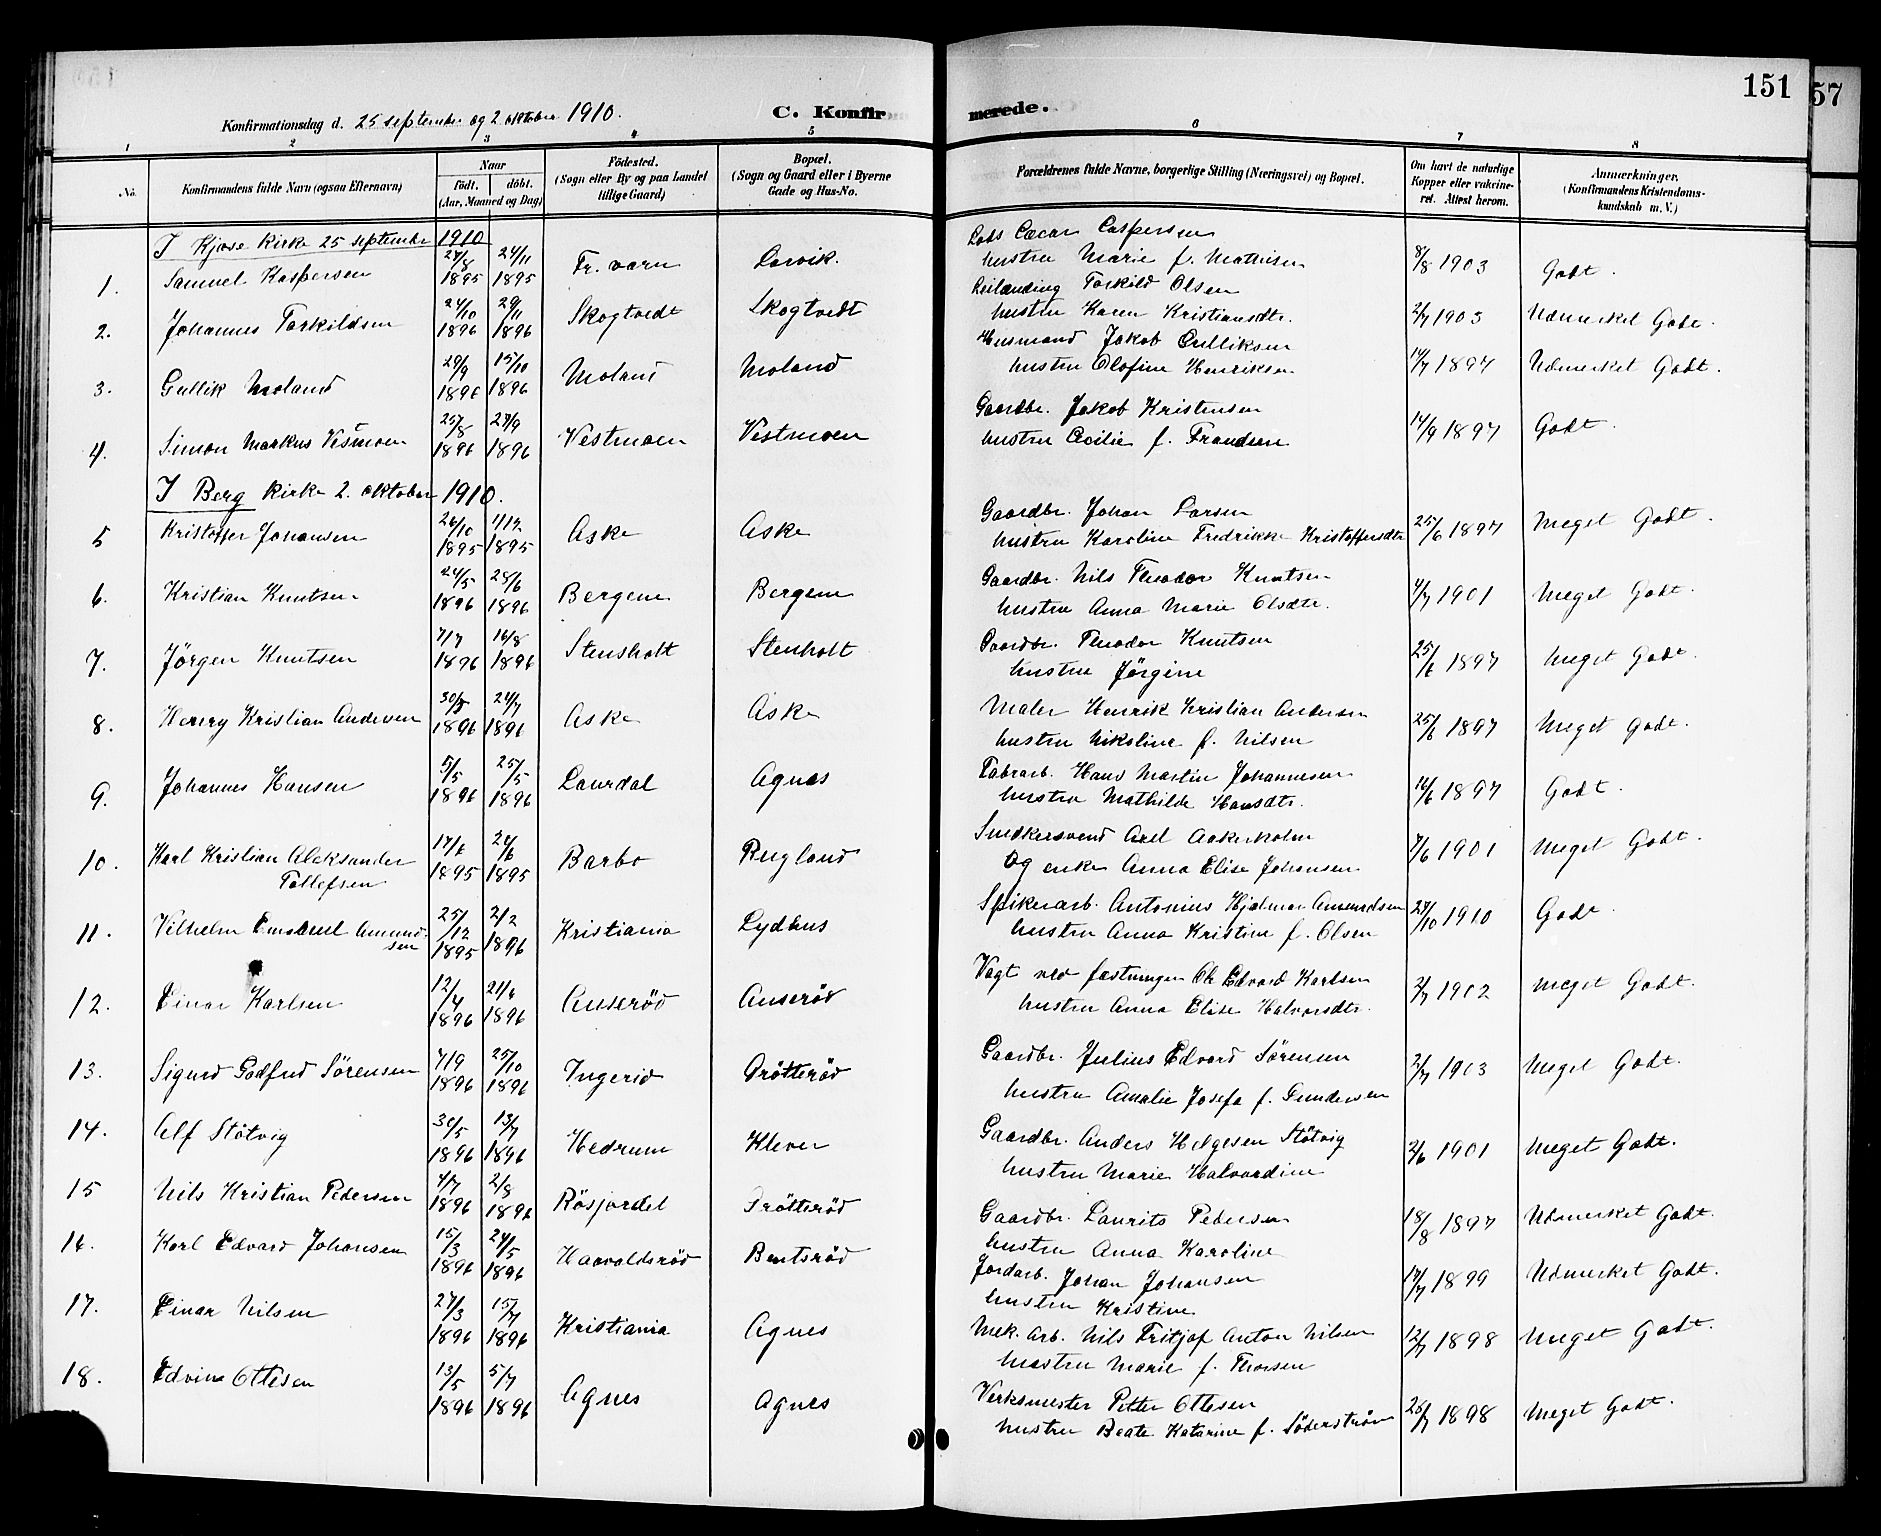 151
57
Konfirmationsdag d. 25 september og 2 oktober 1910.
C. Konfirmerede.
1 2 3 4 5 6 7 8
No.
Konfirmandens fulde Navn (ogsaa Efternavn)
Naar
født. døbt.
(Aar, Maaned og Dag)
Födested.
(Sogn eller By og paa Landet
tillige Gaard)
Bopæl.
(Sogn og Gaard eller i Byerne
Gade og Hus-No.
Forældrenes fulde Navne, borgerlige Stilling (Næringsvei) og Bopæl.
Om havt de naturlige
Kopper eller vakcine-
ret. Attest herom.
Anmærkninger.
(Konfirmandens Kristendoms-
kundskab m. V.)
I Kjose kirke 25 september 1910
Lods Cæcar Caspersen
1. Samuel Kaspersen 27/8 1895 24/11 1895 Fr. værn Larvik. hustru Marie f. Mathisen 8/8 1903 Godt.
Leilænding Torkild Olsen
2. Johannes Torkildsen 24/10 1896 29/11 1896 Skogtvedt Skogtvedt hustru Karen Kristiansdtr. 2/7 1903 Udmerket Godt.
Husmand Jakob Gulliksen
3. Gullik Moland 29/9 1896 15/10 1896 Moland Moland hustru Olofine Henriksen 14/7 1897 Udmerket Godt.
Gaardbr. Jakob Kristensen
4. Simon Markus Vestmoen 25/8 1896 27/9 1896 Vestmoen Vestmoen hustru Cecilie f. Frandsen 14/9 1897 Godt.
I Berg kirke 2. oktober 1910.
Gaardbr. Johan Larsen
5 Kristoffer Johansen 26/10 1895 1/12 1895 Aske Aske hustru Karoline Fredrikke Kristoffersdtr 25/6 1897 Meget Godt.
Gaardbr. Nils Theodor Knutsen
6. Kristian Knutsen 24/5 1896 28/6 1896 Bergene Bergene hustru Anna Marie Olsdtr. 4/7 1901 Meget Godt.
Gaardbr. Theodor Knutsen
7. Jörgen Knutsen 7/7 1896 16/8 1896 Stensholt Stenholt hustru Jörgine 25/6 1897 Meget Godt.
Maler Henrik Kristian Andersen
8. Henry Kristian Andersen 30/5 1896 24/7 1896 Aske Aske hustru Nikoline f. Nilsen 25/6 1897 Meget Godt.
Fabrarb. Hans Martin Johannesen
9. Johannes Hansen 5/5 1896 25/5 1896 Laurdal Agnes hustru Mathilde Hansdtr. 16/6 1897 Godt.
Snedkersvend Axel Aakerholm
10. Karl Kristian Aleksander 17/6 1895 24/6 1895 Barbo Rugland og enke Anna Elise Johansen 7/6 1901 Meget Godt.
Tollefsen
Spikerarb. Antonius Hjalmar Amundsen
11. Vilhelm Emanuel Amund- 25/12 1895 2/2 1896 Kristiania Lydhus hustru Anna Kristine f. Olsen 27/10 1910 Godt.
sen
Vagt ved fæstningen Ole Edvard Karlsen
12. Einar Karlsen 12/4 1896 21/6 1896 Anserød Anserød hustru Anna Elise Halvorsdtr. 2/7 1902 Meget Godt.
Gaardbr. Julius Edvard Sørensen
13. Sigurd Godfred Sörensen 7/9 1896 25/10 1896 Ingerid Trötteröd hustru Amalie Josefa f. Gundersen 2/7 1903 Meget Godt.
Gaardbr. Anders Helgesen Stötvig
14. Alf Stötvig 30/5 1896 13/7 1896 Hedrum Klever hustru Marie Halvordine 2/6 1901 Meget Godt.
Gaardbr. Laurits Pedersen
15 Nils Kristian Pedersen 4/7 1896 2/8 1896 Røsjordet Trötteröd hustru Anna Karoline 18/8 1897 Udmerket Godt.
Jordarb. Johan Johansen
16. Karl Edvard Johansen 15/3 1896 24/5 1896 Haavaldsröd Bentsröd hustru Kristine 17/7 1899 Udmerket Godt.
Mek. Arb. Nils Fritjof Anton Nilsen
17. Einar Nilsen 27/3 1896 15/7 1896 Kristiania Agnes hustru Marie f. Thorsen 12/7 1898 Meget Godt.
Verksmester Petter Ottesen
18. Edvin Ottesen 13/5 1896 5/7 1896 Agnes Agnes hustru Beate Katarine f. Söderström 26/7 1898 Meget Godt.